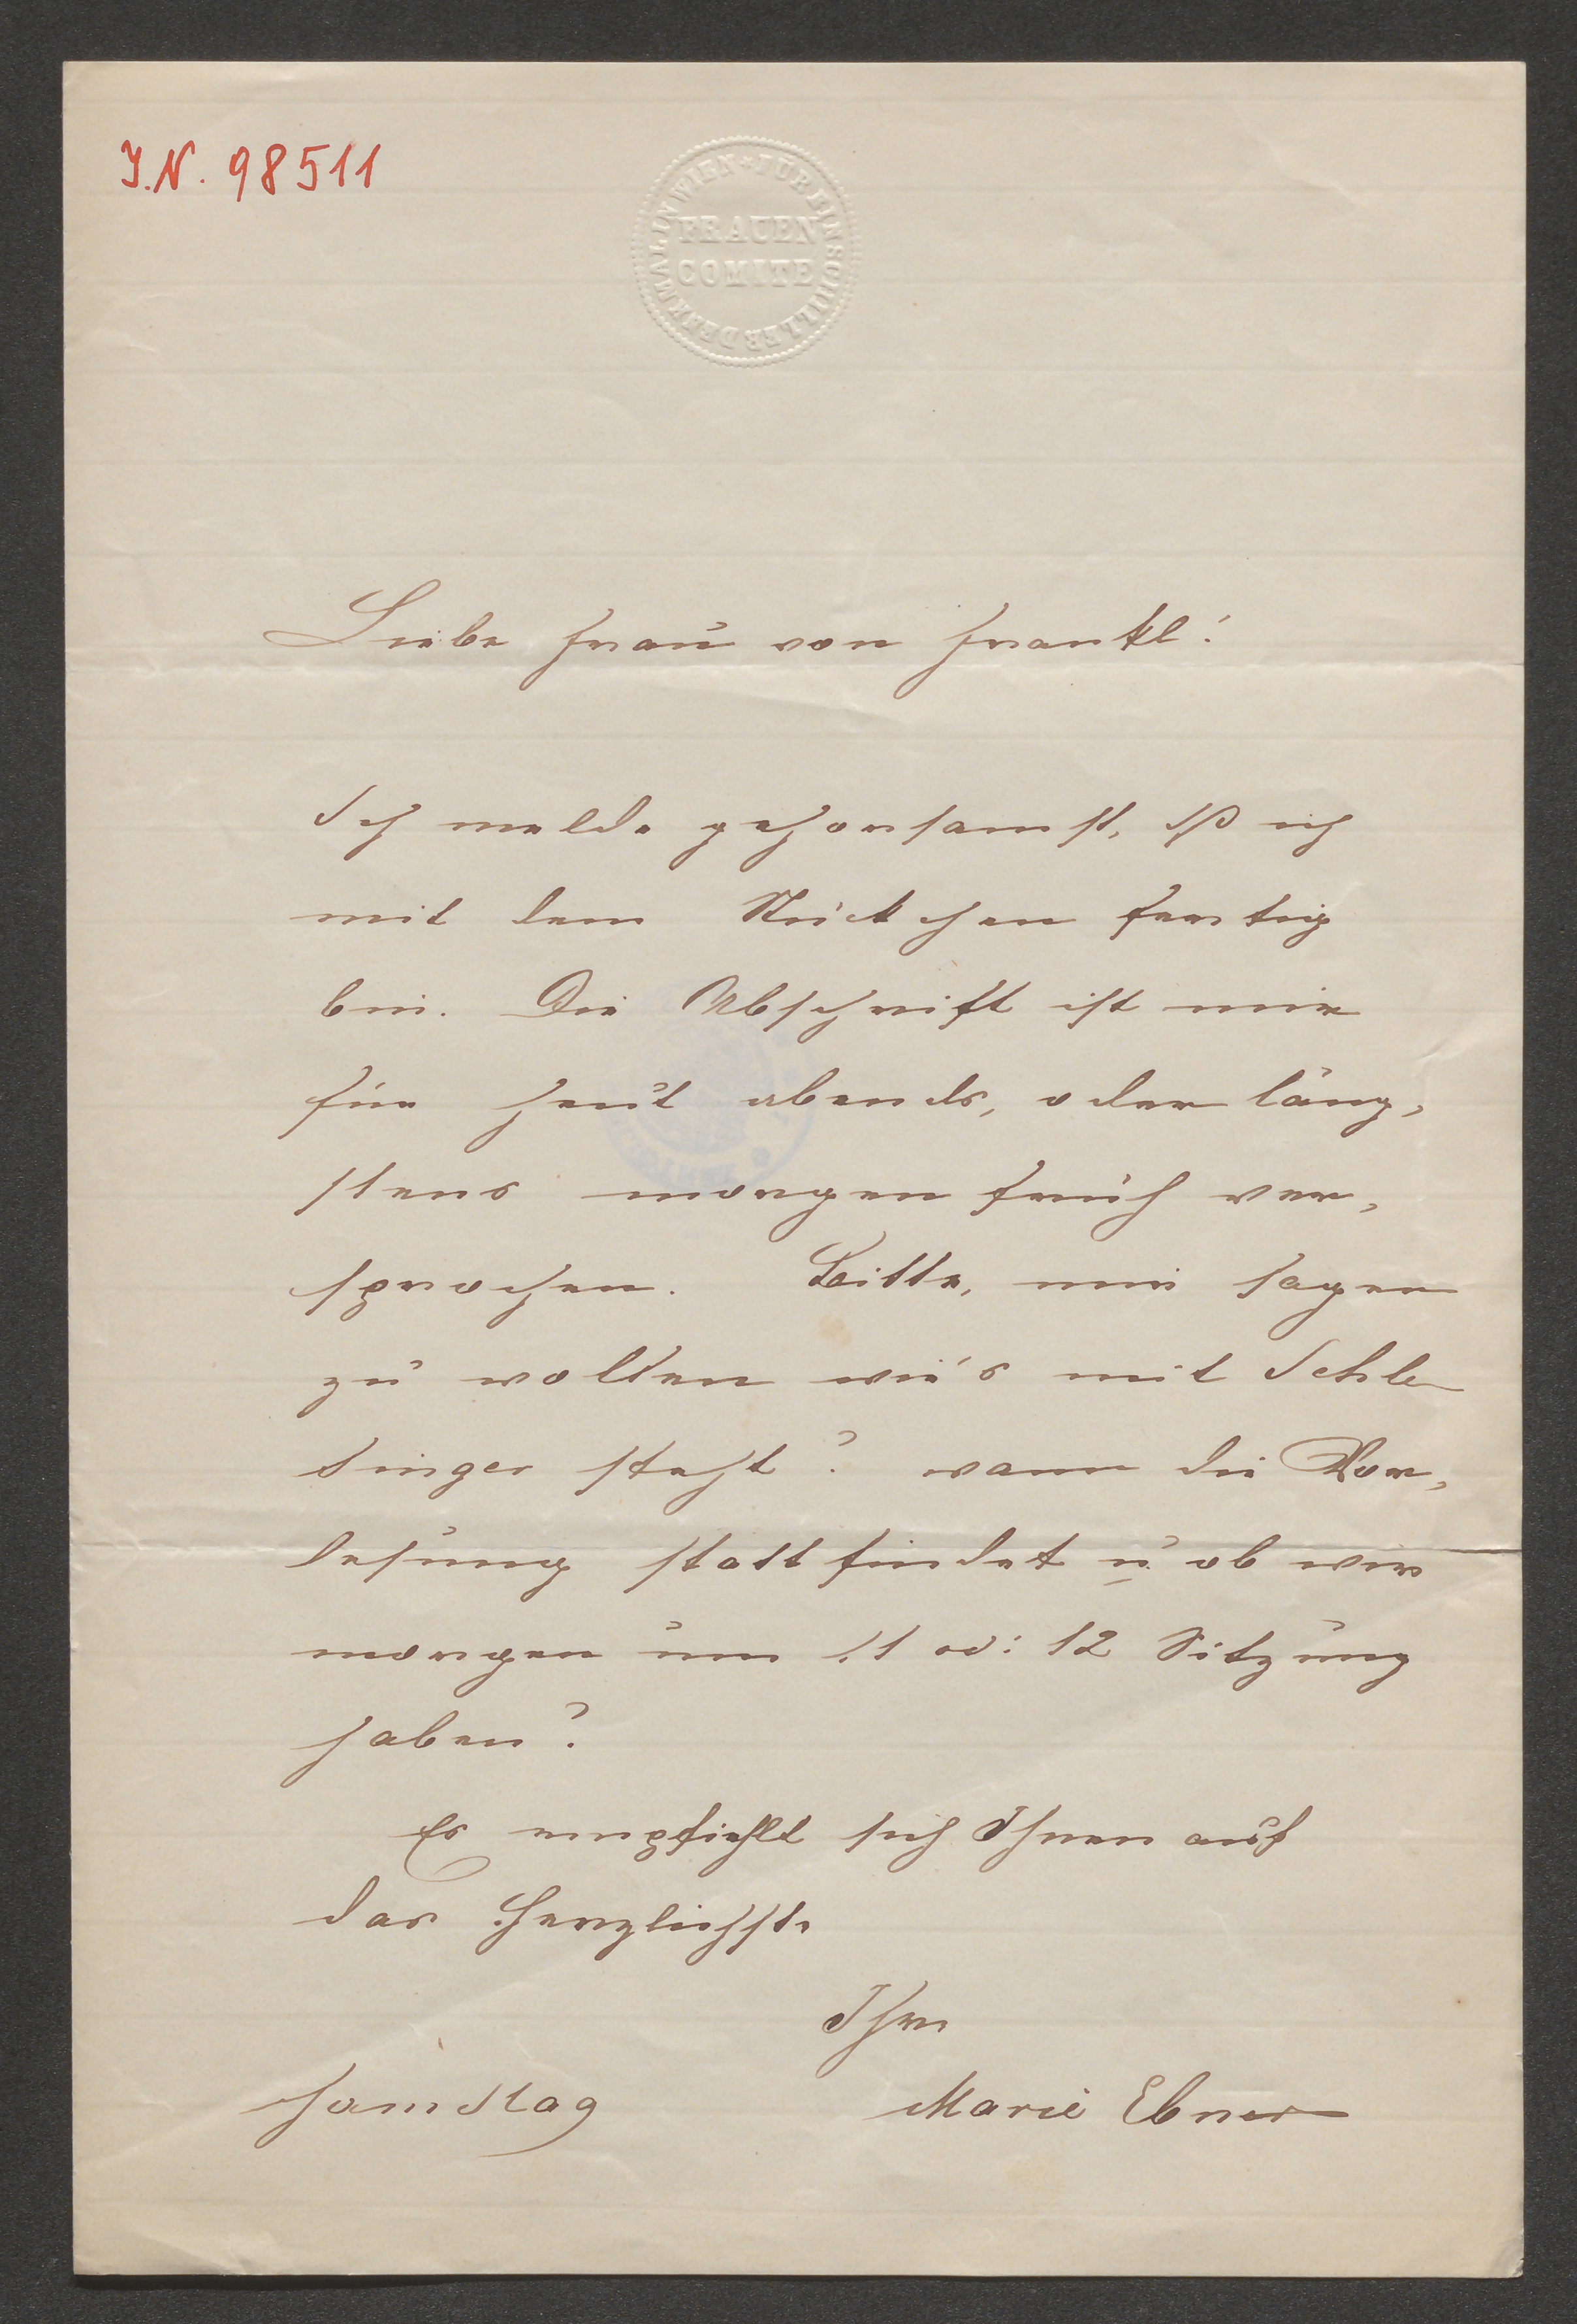 I.N. 98511
FÜR EIN SCHILLERDENKMAL IN WIEN *
FRAUEN
COMITE
Liebe Frau von Frankl!
Ich melde gehorsamst, dß ich
mit dem Stückchen fertig
bin. Die Abschrift ist mir
für heut abends, oder läng,
stens morgen früh ver,
sprochen. Bitte, mir sagen
zu wollen wie's mit Schle
singer steht? wann die Vor,
lesung stattfindet u. ob wir
morgen um 11 od: 12 Sitzung
haben?
Es empfiehlt sich Ihnen auf
das Herzlichste
Ihre
Samstag Marie Ebner